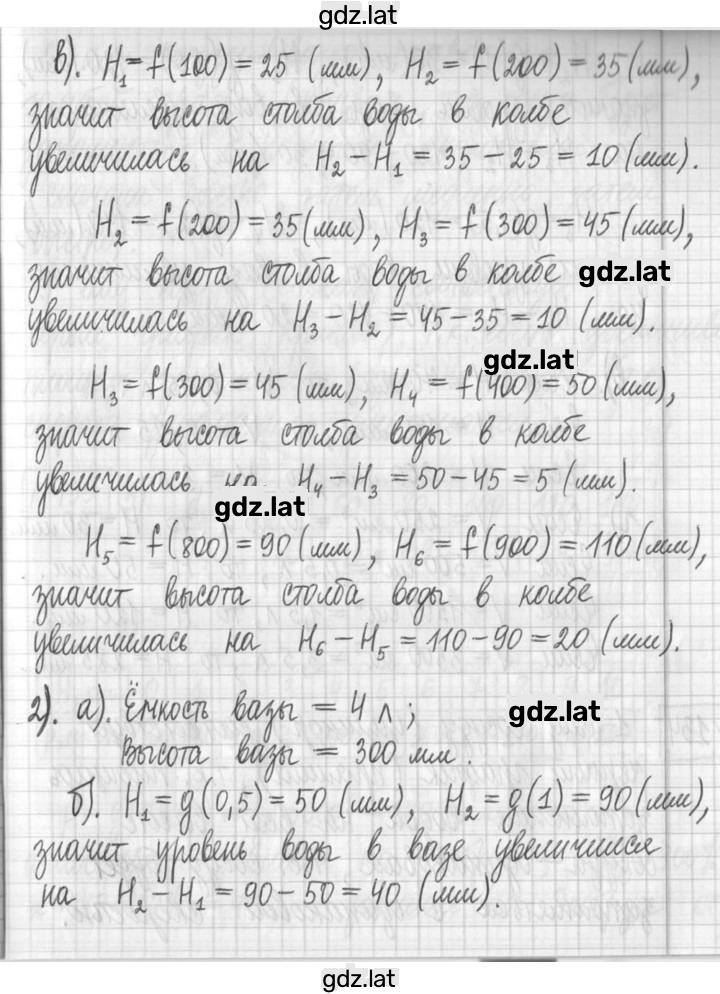 gdz.lat
в). H₁=f(100)=25 (мм), H₂=f(200)=35(мм),
значит высота столба воды в колбе
увеличилась на H₂-H₁=35-25=10(мм).
H₂=f(200)=35(мм), H₃=f(300)=45(мм),
значит высота столба воды в колбе gdz.lat
увеличилась на H₃-H₂=45-35=10 (мм).
gdz.lat
H₃=f(300)=45 (мм), H₄=f(400)=50(мм),
значит высота столба воды в колбе
увеличилась на H₄-H₃=50-45=5(мм).
gdz.lat
H₅=f(800)=90(мм), H₆=f(900)=110(мм),
значит высота столба воды в колбе
увеличилась на H₆-H₅=110-90=20(мм).
2). а). Ёмкость вазы = 4 л; gdz.lat
Высота вазы = 300 мм.
б). H₁=g(0,5)=50 (мм), H₂=g(1)=90(мм),
значит уровень воды в вазе увеличился
на H₂-H₁=90-50=40 (мм).
gdz.lat